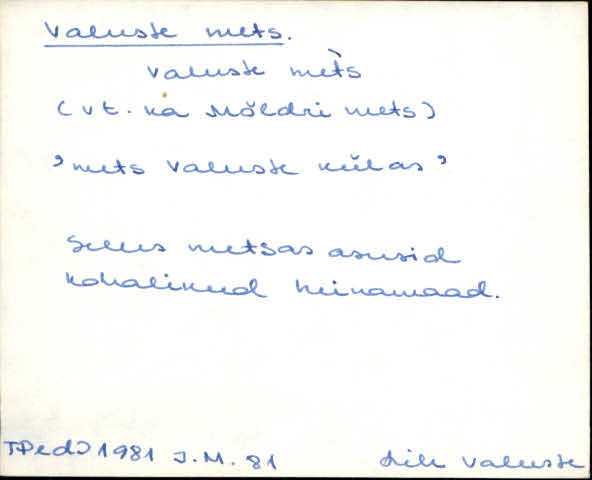 Valuste mets.
valuste met̀s
(vt. ka Möldri mets)
'mets Valuste külas'
Selles metsas asusid
kohalikud heinamaad.
TPedI 1981 J.M. 81
Lük Valuste